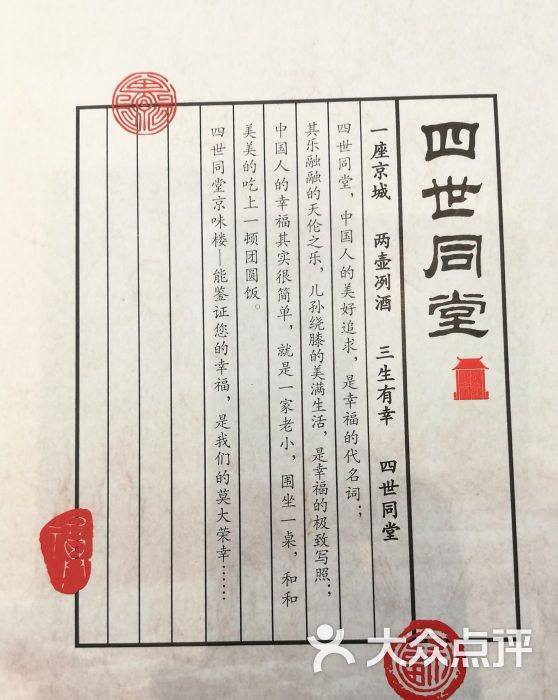 四世同堂
一座京城 两壶冽酒 三生有幸 四世同堂
四世同堂，中国人的美好追求，是幸福的代名词；
其乐融融的天伦之乐，儿孙绕膝的美满生活，是幸福的极致写照；
中国人的幸福其实很简单，就是一家老小，围坐一桌，和和
美美的吃上一顿团圆饭。
四世同堂京味楼—能鉴证您的幸福，是我们的莫大荣幸……
大众点评